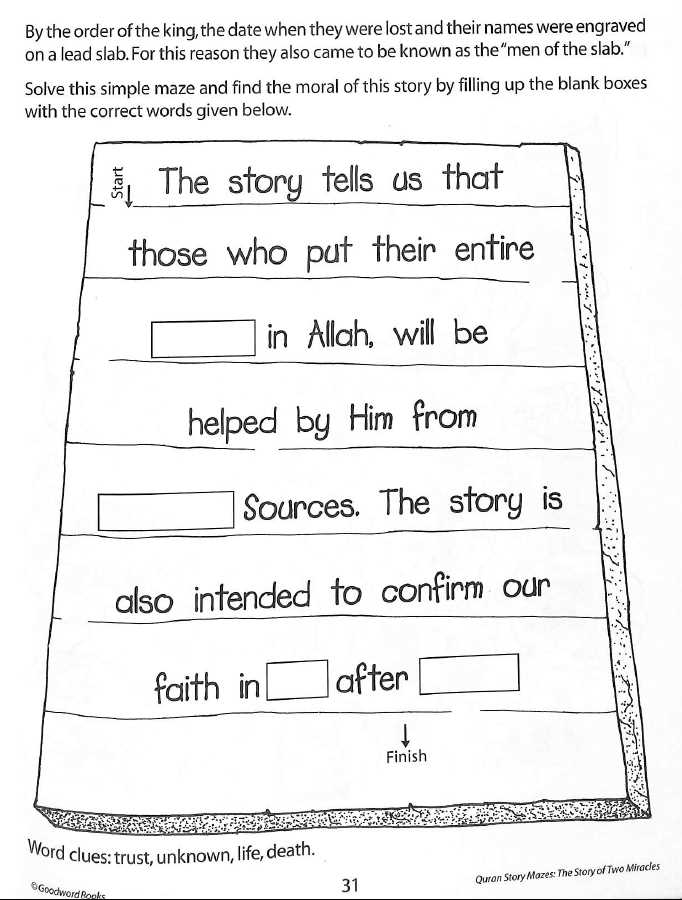 By the order of the king, the date when they were lost and their names were engraved
on a lead slab. For this reason they also came to be known as the "men of the slab."
Solve this simple maze and find the moral of this story by filling up the blank boxes
with the correct words given below.
Start
The story tells us that
those who put their entire
in Allah, will be
helped by Him from
Sources. The story is
also intended to confirm our
faith in after
Finish
Word clues: trust, unknown, life, death.
©Goodword Books
31
Quran Story Mazes: The Story of Two Miracles